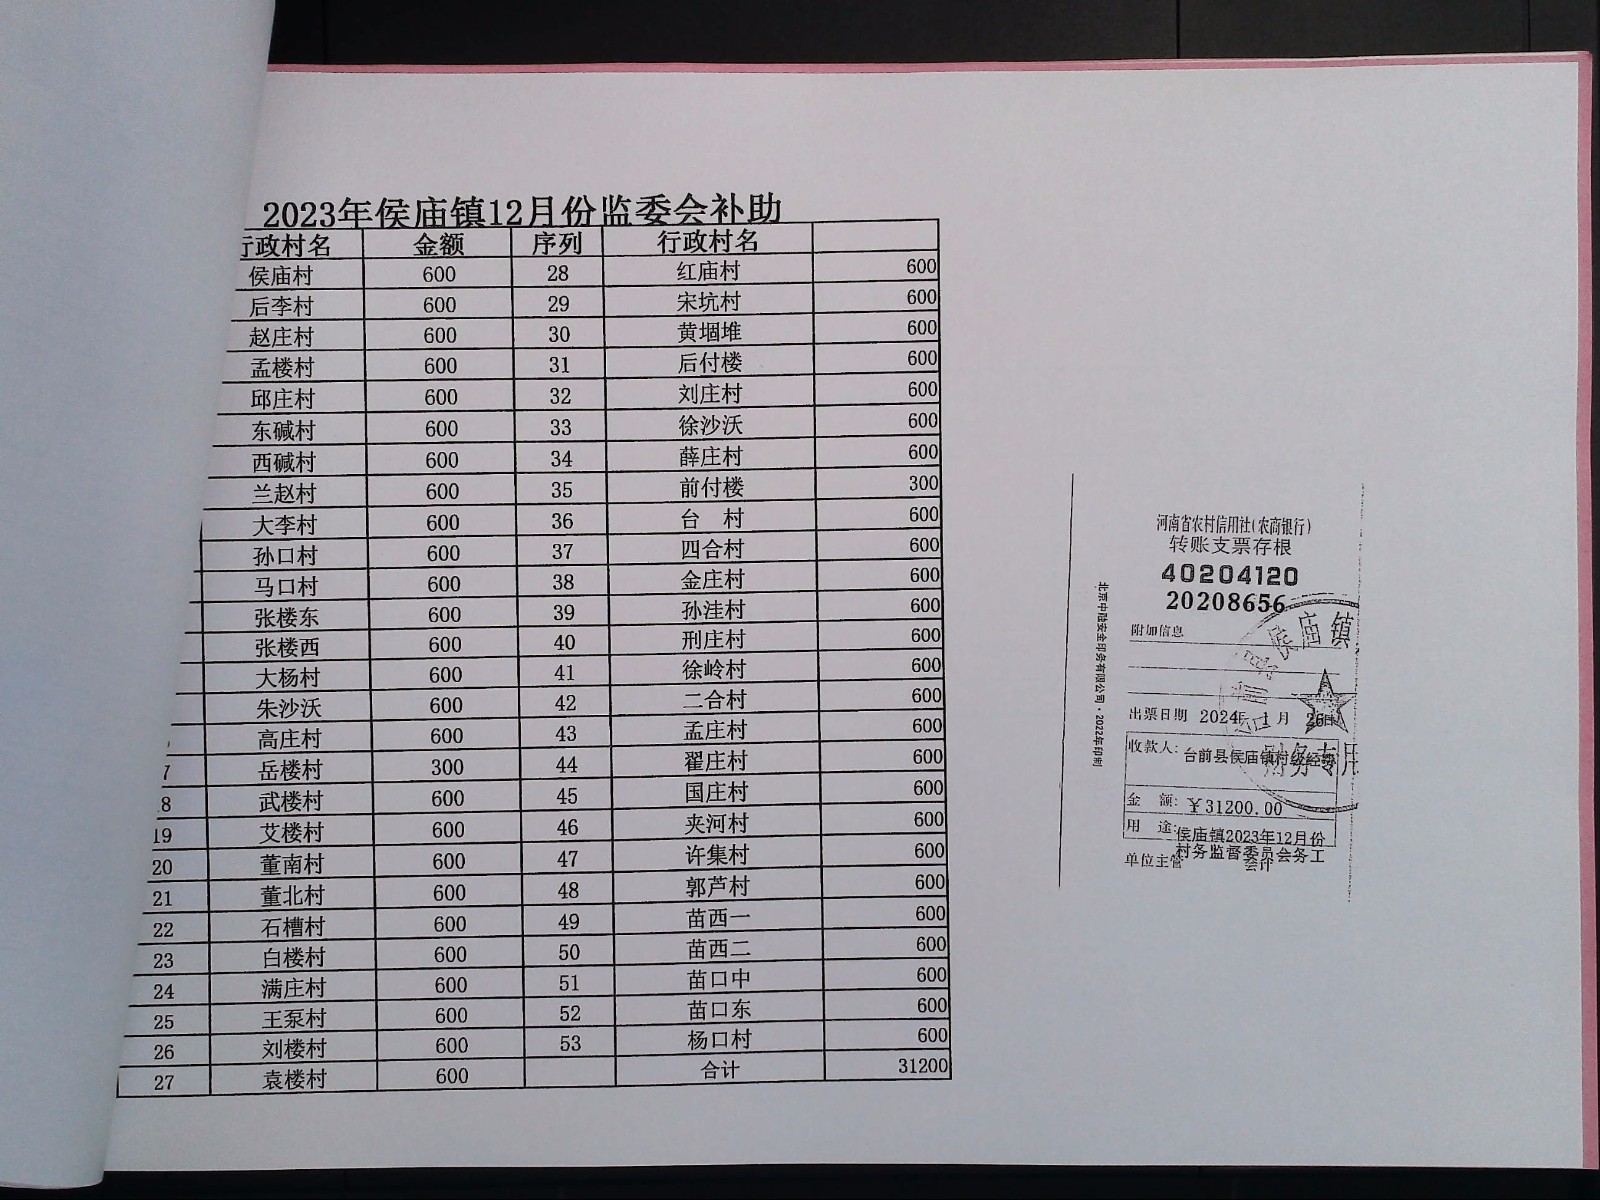 2023年侯庙镇12月份监委会补助
行政村名 金额 序列 行政村名
侯庙村 600 28 红庙村 600
后李村 600 29 宋坑村 600
赵庄村 600 30 黄堌堆 600
孟楼村 600 31 后付楼 600
邱庄村 600 32 刘庄村 600
东碱村 600 33 徐沙沃 600
西碱村 600 34 薛庄村 600
兰赵村 600 35 前付楼 300
大李村 600 36 台 村 600
孙口村 600 37 四合村 600
马口村 600 38 金庄村 600
张楼东 600 39 孙洼村 600
张楼西 600 40 刑庄村 600
大杨村 600 41 徐岭村 600
朱沙沃 600 42 二合村 600
高庄村 600 43 孟庄村 600
7 岳楼村 300 44 翟庄村 600
8 武楼村 600 45 国庄村 600
19 艾楼村 600 46 夹河村 600
20 董南村 600 47 许集村 600
21 董北村 600 48 郭芦村 600
22 石槽村 600 49 苗西一 600
23 白楼村 600 50 苗西二 600
24 满庄村 600 51 苗口中 600
25 王泵村 600 52 苗口东 600
26 刘楼村 600 53 杨口村 600
27 袁楼村 600 合计 31200
河南省农村信用社(农商银行)
转账支票存根
40204120
20208656
附加信息
出票日期 2024年 1月 26日
收款人: 台前县侯庙镇村级经
金 额: ¥31200.00
用 途: 侯庙镇2023年12月份
村务监督委员会务工
单位主管 会计
北京中融安全印务有限公司·2022年印制
侯庙镇
财务专用